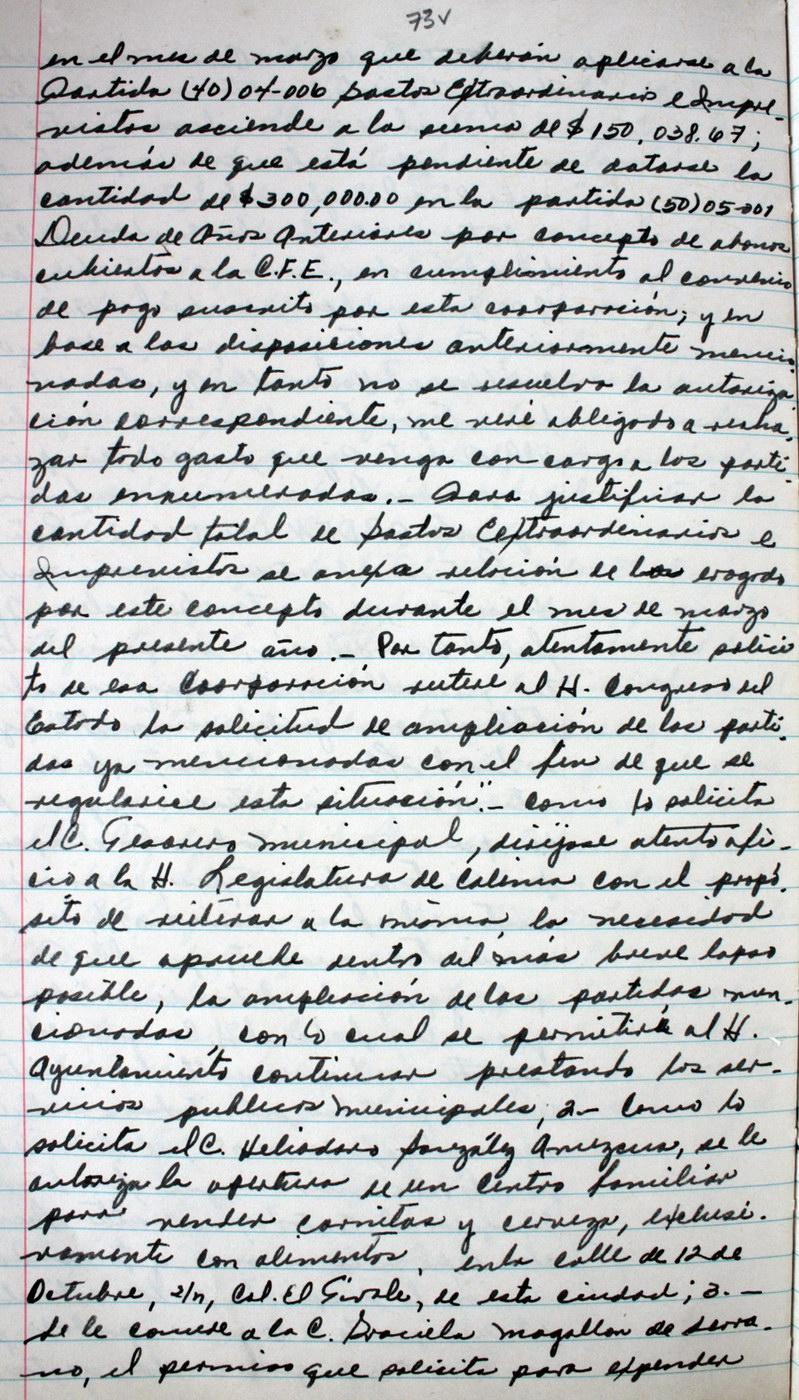 73v
en el mes de marzo que deberán aplicarse a la
Partida (40) 04-006 Gastos Extraordinarios e Impre-
vistos asciende a la suma de $150,038.67;
además de que está pendiente de datarse la
cantidad de $300,000.00 en la partida (50) 05-001
Deuda de Años Anteriores por concepto de abonos
cubiertos a la C.F.E., en cumplimiento al convenio
de pago suscrito por esta coorporación; y en
base a las disposiciones anteriormente mencio-
nadas, y en tanto no se resuelva la autoriza-
ción correspondiente, me veré obligado a recha-
zar todo gasto que venga con cargo a las parti-
das enumeradas.- Para justificar la
cantidad total de Gastos Extraordinarios e
Imprevistos se anexa relación de lo erogado
por este concepto durante el mes de marzo
del presente año.- Por tanto, atentamente solici
to de esa Coorporación reitere al H. Congreso del
Estado la solicitud de ampliación de las parti-
das ya mencionadas con el fin de que se
regularice esta situación".- Como lo solicita
el C. Tesorero Municipal, diríjase atento ofi-
cio a la H. Legislatura de Colima con el propó-
sito de reiterar a la misma, la necesidad
de que apruebe dentro del más breve lapso
posible, la ampliación de las partidas men-
cionadas, con lo cual se permitirá al H.
Ayuntamiento continuar prestando los ser-
vicios publicos municipales; 2.- Como lo
solicita el C. Heliodoro González Amezcua, se le
autoriza la apertura de un Centro familiar
para vender carnitas y cerveza, exclusi-
vamente con alimentos, en la calle de 12 de
Octubre, s/n, Col. El Tívoli, de esta ciudad; 3.-
Se le concede a la C. Graciela Magallon de Serra-
no, el permiso que solicita para expender